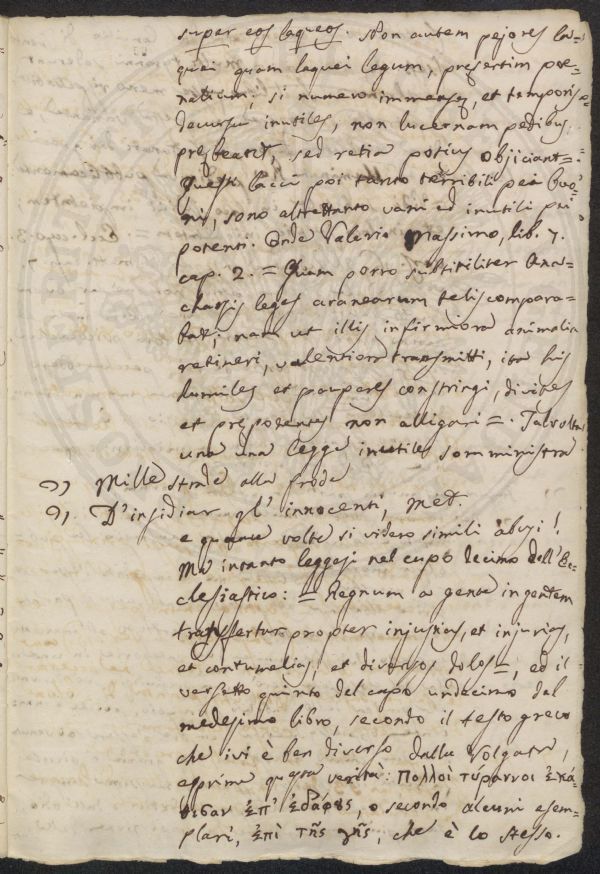 super eos laqueos. Non autem pejores la-
quei quam laquei legum, presertim poe-
nalium; si numero immensę, et temporis
decursu inutiles, non lucernam pedibus
prębeant, sed retia potius objiciant =.
Questi lacci poi tanto terribili pei buo-
ni, sono altrettanto vani ed inutili pei
potenti. Onde Valerio Massimo, lib. 7.
cap. 2. = Quam porro subtiliter Ana-
charsis leges aranearum telis compara-
bat; nam ut illis infirmiora animalia
retineri, valentiora transmitti, ita his
humiles et pauperes constringi, divites
et prępotentes non alligari =. Talvolta
una legge inutile somministra
" Mille strade alla frode
" D'insidiar gl'innocenti, Met.
e quante volte si videro simili abusi!
Ma intanto leggesi nel capo decimo dell'Ec-
clesiastico: = Regnum a gente in gentem
transfertur propter injustias, et injurias,
et contumelias, et diversos dolos =, ed il
versetto quinto del capo undecimo del
medesimo libro, secondo il testo greco
che ivi è ben diverso dalla Volgata,
esprime questa verità: Πολλοὶ τύραννοι ἐκά-
θισαν ἐπ' ἐδάφους, o secondo alcuni esem-
plari, ἐπὶ τῆς γῆς, che è lo stesso.